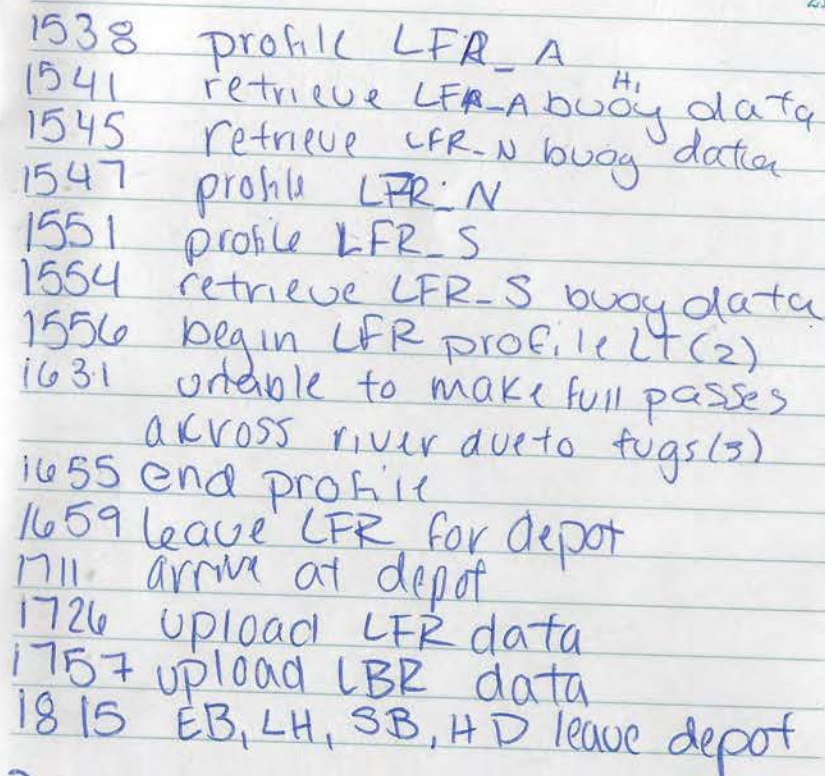 1538 profile LFR_A
1541 retrieve LFR_A buoy data
1545 retrieve LFR_N buoy data
1547 profile LFR_N
1551 profile LFR_S
1554 retrieve LFR_S buoy data
1556 begin LFR profile LT (2)
1631 unable to make full passes
akross river due to tugs (3)
1655 end profile
1659 leave LFR for depot
1711 arrive at depot
1726 upload LFR data
1757 upload LBR data
1815 EB, LH, SB, HD leave depot